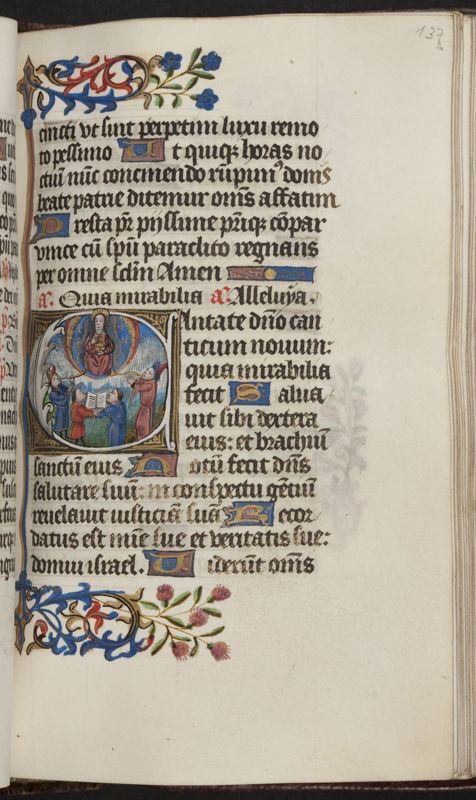 137
cincti vt sint perpetim luxu remo
to pessimo Ut quiqȝ horas no
ctiũ nũc concinendo rũpim9 donis
beate patrie ditemur om̃s affatim
Presta pr̃ pijssime pr̃iqȝ cõpar
vnice cũ sp̃u paraclito regnans
per omne sc̃lm Amen
a. Quia mirabilia a. Alleluya.
Cantate dño can
ticum nouum:
quia mirabilia
fecit Salua
uit sibi dextera
eius: et brachiũ
sanctũ eius Notũ fecit dñs
salutare suũ: in conspectu gẽtiũ
reuelauit iusticiã suã Recor
datus est mĩe sue et veritatis sue:
domui israel. Viderũt om̃s